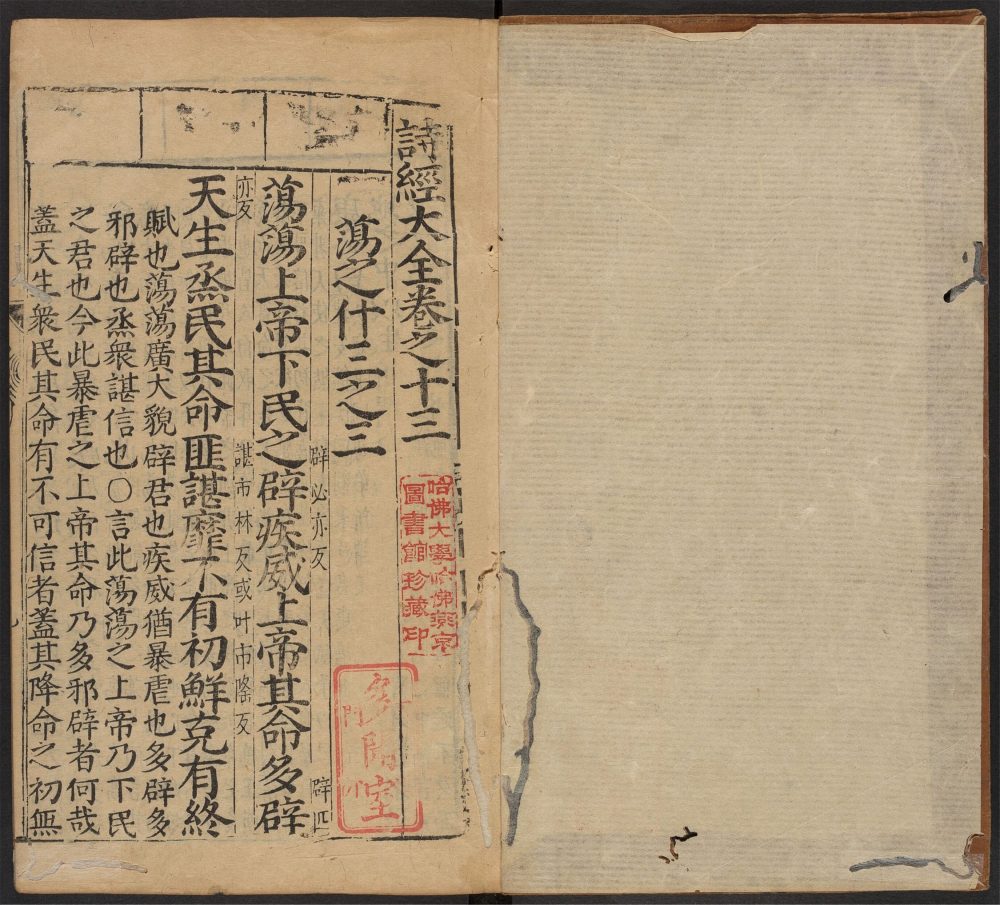 詩經大全卷之十三
蕩之什三之三
辟必亦反 辟匹
蕩蕩上帝下民之辟疾威上帝其命多辟
亦反 諶市林反或叶市隆反
天生烝民其命匪諶靡不有初鮮克有終
賦也蕩蕩廣大貌辟君也疾威猶暴虐也多辟多
邪辟也烝衆諶信也○言此蕩蕩之上帝乃下民
之君也今此暴虐之上帝其命乃多邪辟者何哉
蓋天生衆民其命有不可信者蓋其降命之初無
哈佛大學哈佛燕京
圖書館珍藏印